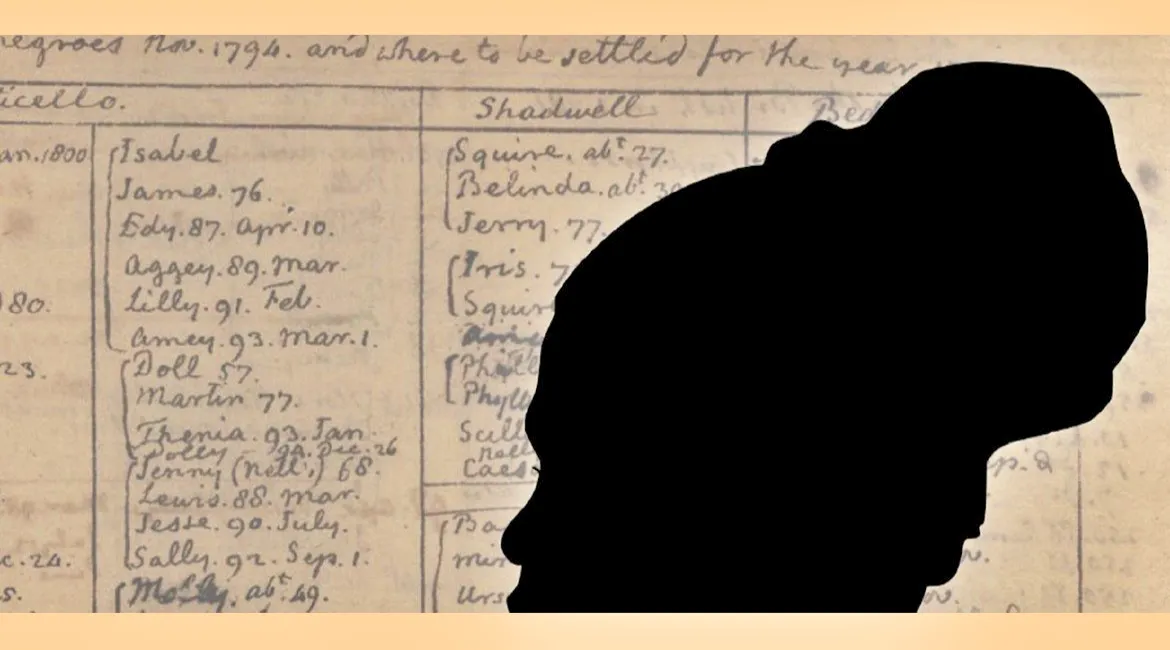 negroes Nov. 1794. and where to be settled for the year
ticello.
Shadwell
Bed
an. 1800
Isabel
James. 76.
Edy. 87. Apr. 10.
Aggey. 89. Mar.
Lilly. 91. Feb.
Amey. 93. Mar. 1.
Doll 57.
Martin 77.
Thenia. 93. Jan
Dolly 94. Dec. 26
Jenny (Nell's) 68.
Lewis. 88. Mar.
Jesse. 90. July.
Sally. 92. Sep. 1.
Molly. abt. 49.
80.
23.
c. 24.
s.
Squire. abt. 27.
Belinda. abt. 39
Jerry. 77.
Iris. 7
Squire
Phill
Phyll
Scill
Caes
Ba
Min
Urs